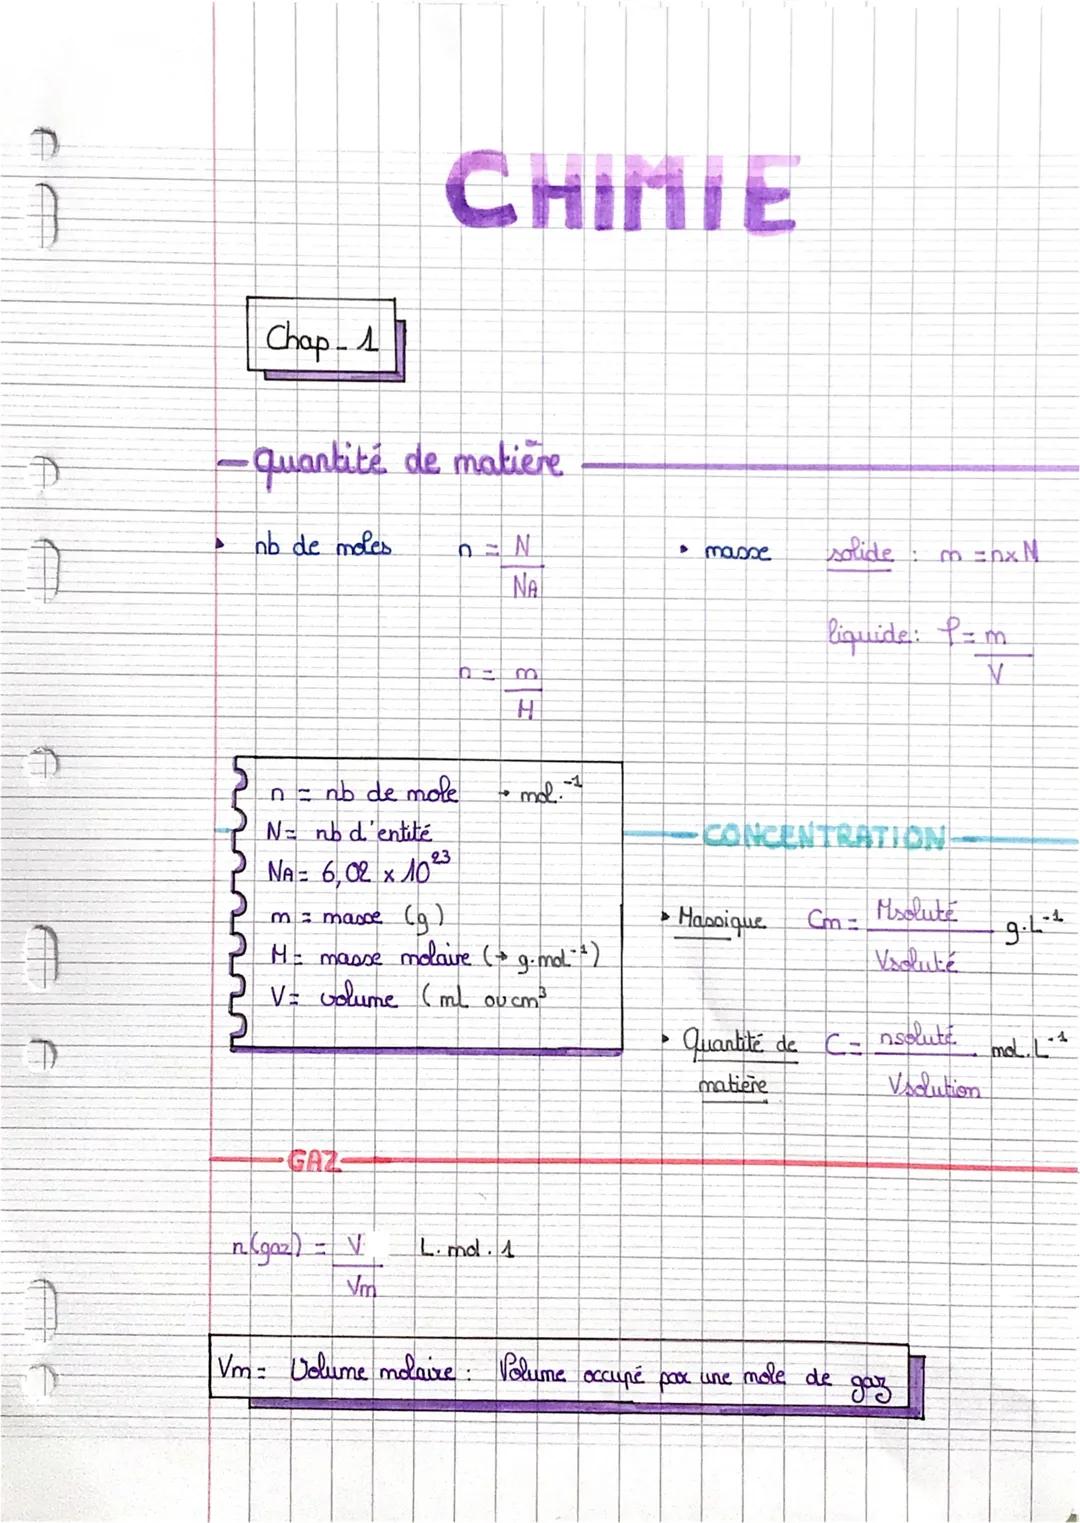 CHIMIE
Chap_1
quantité de matière
nb de moles n = N / NA
n = m / M
masse solide : m = n x M
liquide : ρ = m / V
n = nb de mole → mol.⁻¹
N = nb d'entité
NA = 6,02 x 10²³
m = masse (g)
M = masse molaire (→ g.mol⁻¹)
V = volume (ml ou cm³
CONCENTRATION
Massique Cm = Msoluté / Vsoluté g.L⁻¹
Quantité de matière C = nsoluté / Vsolution mol.L⁻¹
GAZ
n(gaz) = V / Vm L.mol.1
Vm = Volume molaire : Volume occupé par une mole de gaz